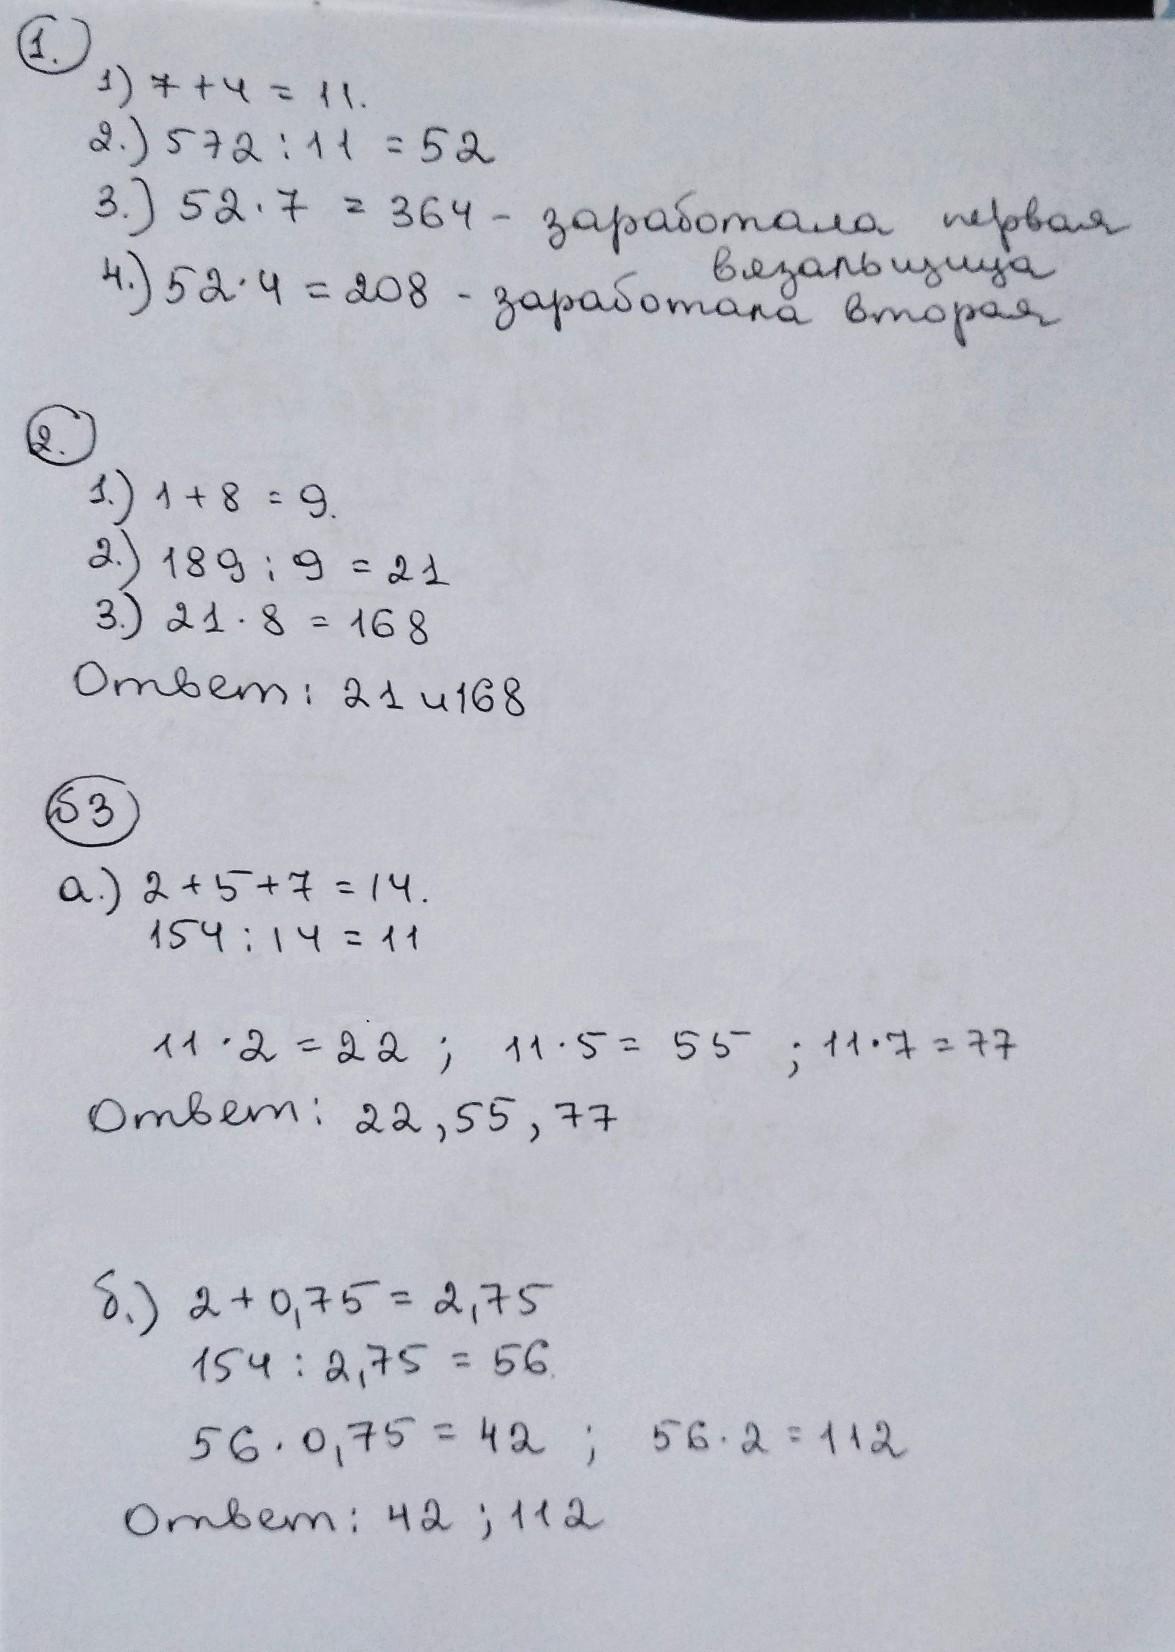 1.
1) 7 + 4 = 11.
2.) 572 : 11 = 52
3.) 52 · 7 = 364 - заработала первая
вязальщица
4.) 52 · 4 = 208 - заработала вторая
2.
1.) 1 + 8 = 9.
2.) 189 : 9 = 21
3.) 21 · 8 = 168
Ответ: 21 и 168
б3
а.) 2 + 5 + 7 = 14.
154 : 14 = 11
11 · 2 = 22 ; 11 · 5 = 55 ; 11 · 7 = 77
Ответ: 22, 55, 77
б.) 2 + 0,75 = 2,75
154 : 2,75 = 56.
56 · 0,75 = 42 ; 56 · 2 = 112
Ответ: 42 ; 112